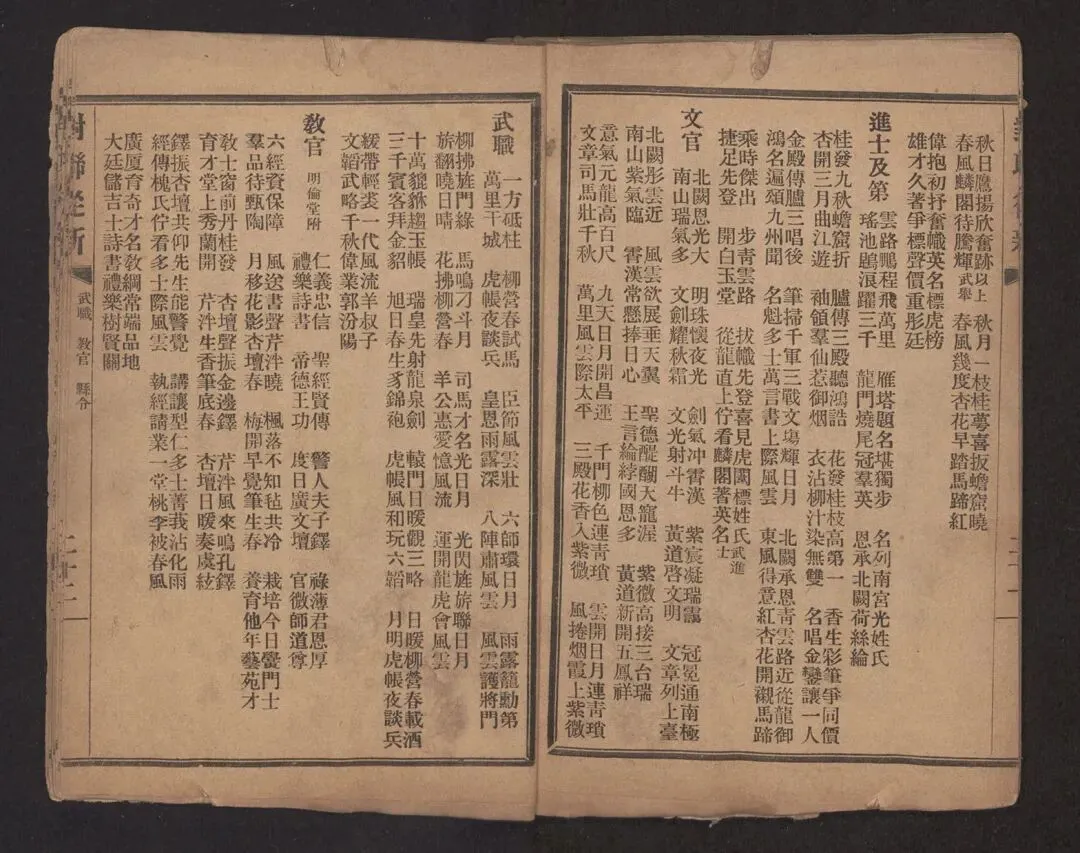 秋日鷹揚欣奮跡以上　秋月一枝桂萼喜扳蟾窟曉
春風麟閣待騰輝武舉　春風幾度杏花早踏馬蹄紅
偉抱初抒奮幟英名標虎榜
雄才久著爭標聲價重彤廷
進士及第　雲路鵬程飛萬里　雁塔題名堪獨步　名列南宮光姓氏
瑤池鵾浪躍三千　龍門燒尾冠羣英　恩承北闕荷絲綸
桂發九秋蟾窟折　臚傳三殿聽鴻誥　花發桂枝高第一　香生彩筆爭同價
杏開三月曲江遊　袖領羣仙惹御烟　衣沾柳汁染無雙　名唱金鑾讓一人
金殿傳臚三唱後　筆掃千軍三戰文塲輝日月　北闕承恩靑雲路近從龍御
鴻名遍頌九州聞　名魁多士萬言書上際風雲　東風得意紅杏花開襯馬蹄
乘時傑出　步靑雲路　拔幟先登喜見虎闈標姓氏武進
捷足先登　開白玉堂　從龍直上佇看麟閣著英名士
文官　北闕恩光大　明珠懷夜光　劍氣冲霄漢　紫宸凝瑞靄　冠冕通南極
南山瑞氣多　文劍耀秋霜　文光射斗牛　黃道啓文明　文章列上臺
北闕彤雲近　風雲欲展垂天翼　聖德醍醐大寵渥　紫微高接三台瑞
南山紫氣臨　霄漢常懸捧日心　王言綸綍國恩多　黃道新開五鳳祥
意氣元龍高百尺　九天日月開昌運　千門柳色連靑瑣　雲開日月連靑瑣
文章司馬壯千秋　萬里風雲際太平　三殿花香入紫微　風捲烟霞上紫微
武職　一方砥柱　柳營春試馬　臣節風雲壯　六師環日月　雨露籠勳第
萬里干城　虎帳夜談兵　皇恩雨露深　八陣肅風雲　風雲護將門
柳拂旌門綠　馬鳴刁斗月　司馬才名光日月　光閃旌旂聯日月
旂翻曉日晴　花拂柳營春　羊公惠愛憶風流　運開龍虎會風雲
十萬貔貅趨玉帳　瑞皇先射龍泉劍　轅門日暖觀三略　日暖柳營春載酒
三千賓客拜金貂　旭日春生豸錦袍　虎帳風和玩六韜　月明虎帳夜談兵
緩帶輕裘一代風流羊叔子
文韜武略千秋偉業郭汾陽
敎官　明倫堂附　仁義忠信　聖經賢傳　警人夫子鐸　祿薄君恩厚
禮樂詩書　帝德王功　度日廣文壇　官微師道尊
六經資保障　風送書聲芹泮曉　楓落不知毡共冷　栽培今日黌門士
羣品待甄陶　月移花影杏壇春　梅開早覺筆生春　養育他年藝苑才
敎士窗前丹桂發　杏壇聲振金邊鐸　芹泮風來鳴孔鐸
育才堂上秀蘭開　芹泮生香筆底春　杏壇日暖奏虞絃
鐸振杏壇共仰先生能警覺　講讓型仁多士菁莪沾化雨
經傳槐氏佇看多士際風雲　執經請業一堂桃李被春風
廣厦育奇才名敎綱常端品地
大廷儲吉士詩書禮樂樹賢關
對聯從新　武職　敎官　縣令　二十二